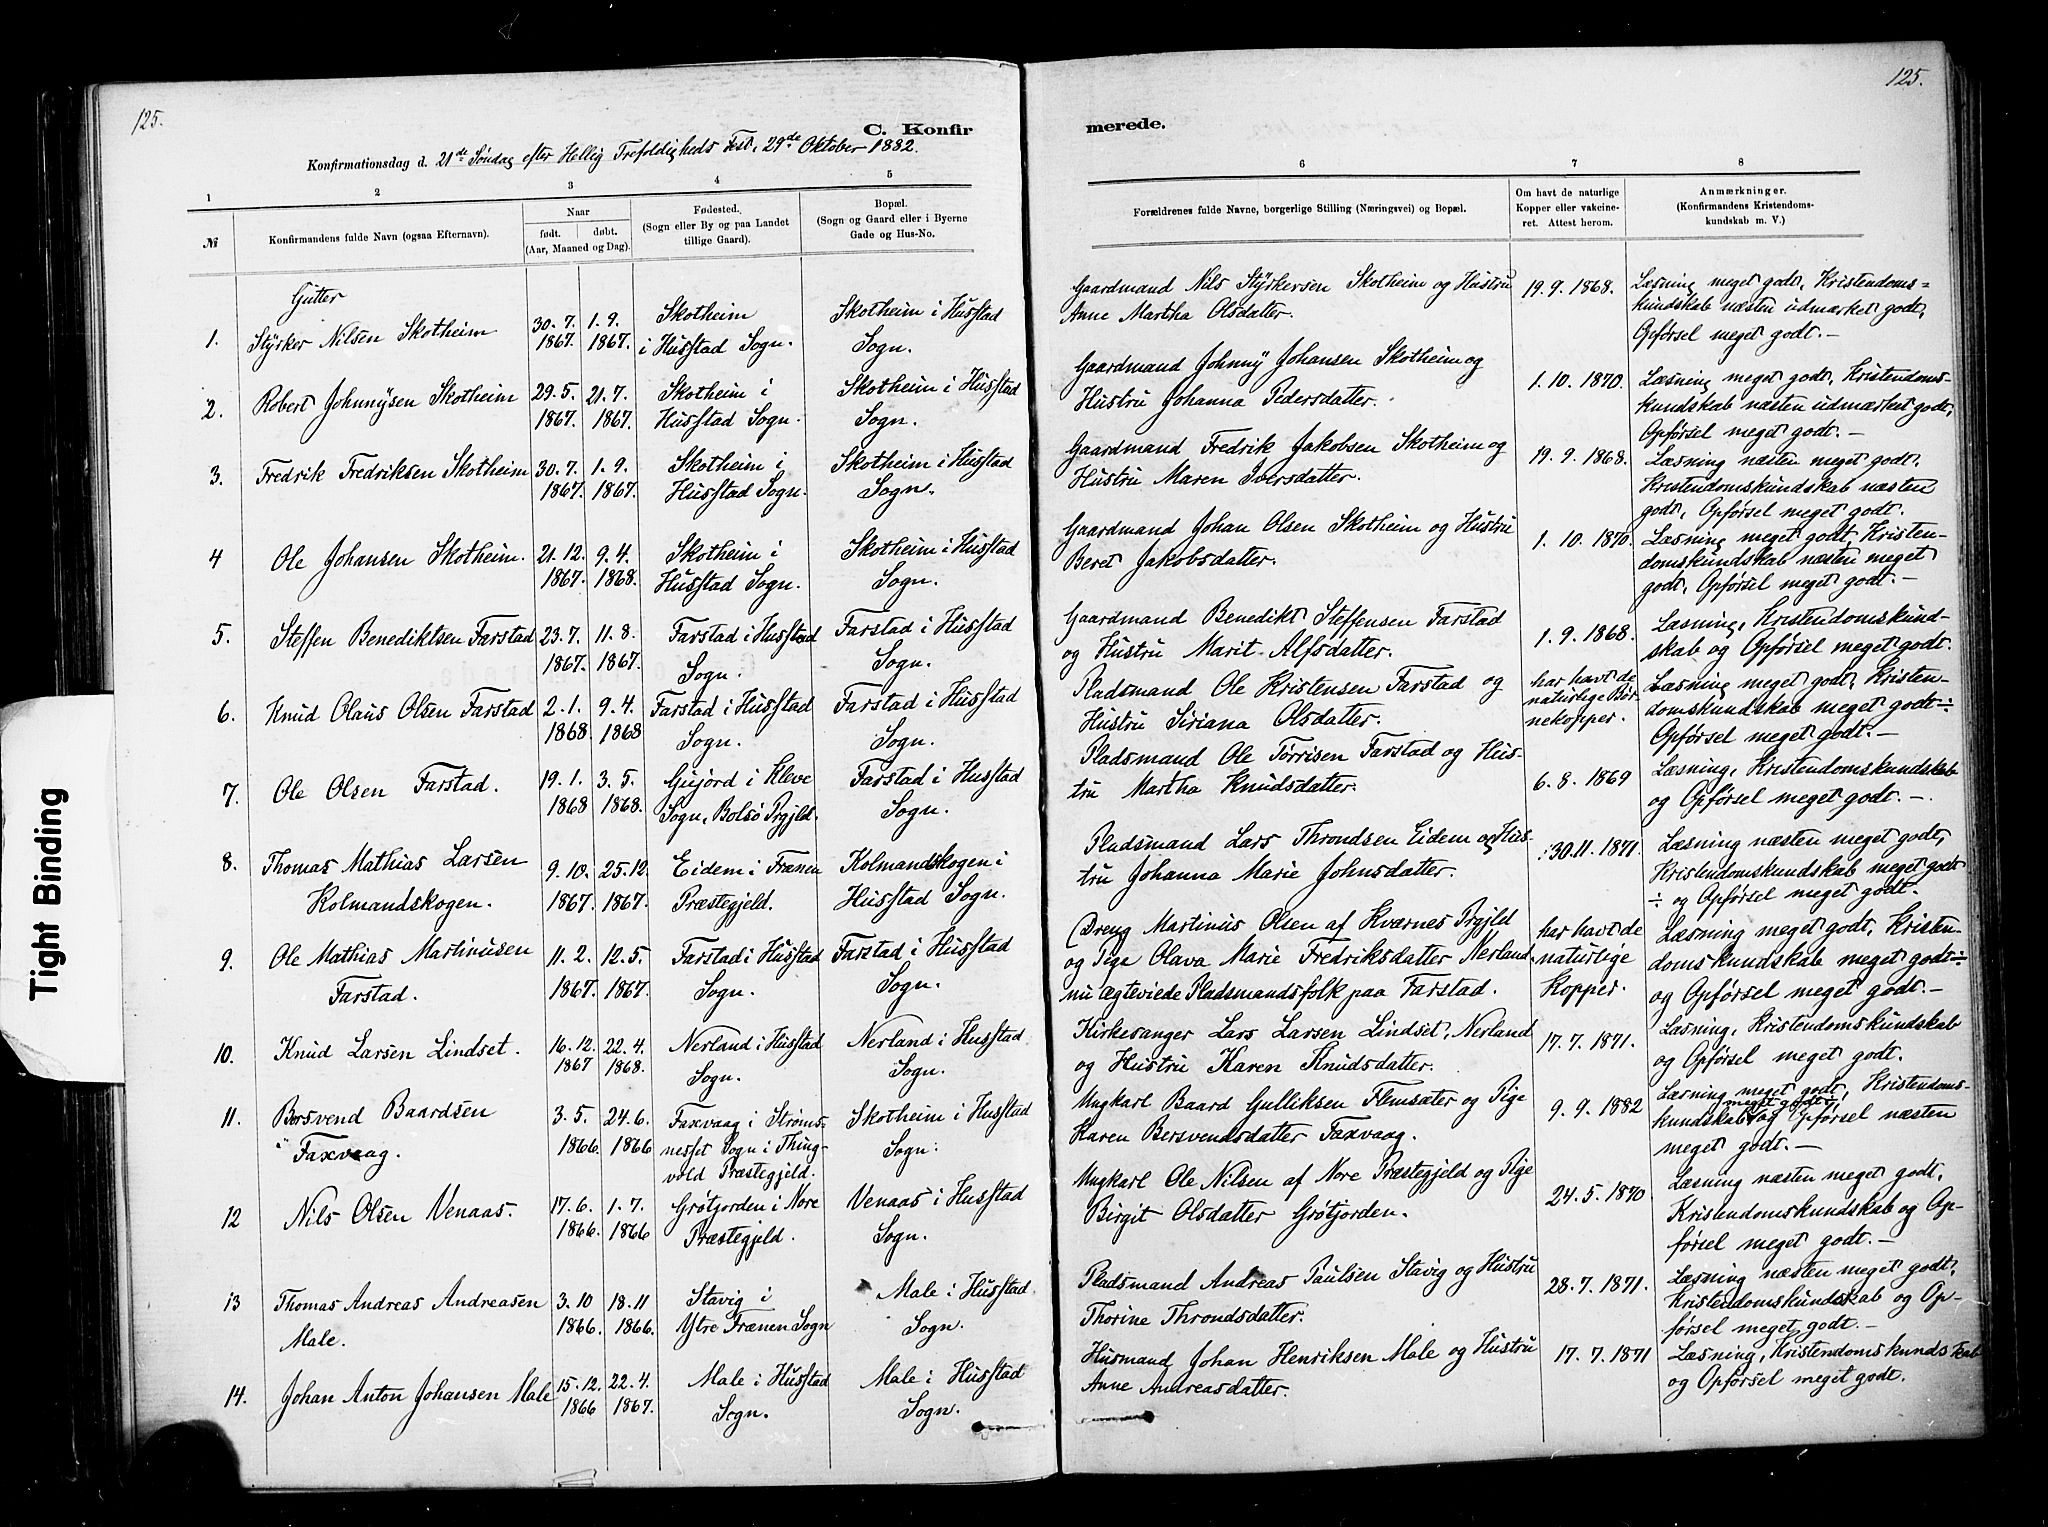 125.
C. Konfir
Konfirmationsdag d. 21de Søndag efter Hellig Trefoldigheds Fest, 29de Oktober 1882.
1 2 3 4 5
№ Konfirmandens fulde Navn (ogsaa Efternavn).
Naar født. døbt. (Aar, Maaned og Dag).
Fødested. (Sogn eller By og paa Landet tillige Gaard).
Bopæl. (Sogn og Gaard eller i Byerne Gade og Hus-No.
Gutter
1. Styrker Nilsen Skotheim 30. 7. 1. 9. Skotheim Skotheim i Husstad
1867. 1867. i Husstad Sogn. Sogn.
2. Robert Johnnysen Skotheim 29. 5. 21. 7. Skotheim i Skotheim i Husstad
1867. 1867. Husstad Sogn. Sogn.
3. Fredrik Fredriksen Skotheim 30. 7. 1. 9. Skotheim i Skotheim i Husstad
1867. 1867. Husstad Sogn. Sogn.
4 Ole Johansen Skotheim. 21. 12. 9. 4. Skotheim i Skotheim i Husstad
1867. 1868. Husstad Sogn. Sogn.
5. Steffen Benediktsen Farstad 23. 7. 11. 8. Farstad i Husstad Farstad i Husstad
1867. 1867. Sogn. Sogn.
6. Knud Olaus Olsen Farstad 2. 1. 9. 4. Farstad i Husstad Farstad i Husstad
1868. 1868 Sogn. Sogn.
7. Ole Olsen Farstad. 19. 1. 3. 5. Gujord i Kleve Farstad i Husstad
1868 1868. Sogn, Bolsø Prgjld. Sogn.
8. Thomas Mathias Larsen 9. 10. 25. 12. Eidem i Frænen Kolmandskogen i
Kolmandskogen. 1867. 1867. Præstegjeld. Husstad Sogn.
9. Ole Mathias Martinusen 11. 2. 12. 5. Farstad i Husstad Farstad i Husstad
Farstad. 1867. 1867. Sogn. Sogn.
10. Knud Larsen Lindset. 16. 12. 22. 4. Nerland i Husstad Nerland i Husstad
1867 1868. Sogn. Sogn.
11. Bersvend Baardsen 3. 5. 24. 6. Faxvaag i Strøms- Skotheim i Husstad
Faxvaag. 1866. 1866 nesset Sogn i Thing- Sogn.
vold Præstegjeld.
12 Nils Olsen Venaas. 17. 6. 1. 7. Grøtjorden i Nore Venaas i Husstad
1866. 1866 Præstegjeld. Sogn.
13 Thomas Andreas Andreasen 3. 10 18. 11 Stavig i Male i Husstad
Male. 1866. 1866. Ytre Frænen Sogn Sogn.
14. Johan Anton Johansen Male 15. 12. 22. 4. Male i Husstad Male i Husstad
1866 1867. Sogn. Sogn.
125.
merede.
6 7 8
Forældrenes fulde Navne, borgerlige Stilling (Næringsvei) og Bopæl.
Om havt de naturlige Kopper eller vakcineret. Attest herom.
Anmærkninger. (Konfirmandens Kristendomskundskab m. V.)
Gaardmand Nils Styrkersen Skotheim og Hustru 19. 9. 1868. Læsning meget godt, Kristendoms=
Anne Martha Olsdatter. kundskab næsten udmærket godt,
Opførsel meget godt. —
Gaardmand Johnny Johansen Skotheim og 1. 10. 1870. Læsning meget godt, Kristendoms-
Hustru Johanna Pedersdatter. kundskab næsten udmærket godt,
Opførsel meget godt. —
Gaardmand Fredrik Jakobsen Skotheim og 19. 9. 1868. Læsning næsten meget godt,
Hustru Maren Iversdatter. Kristendomskundskab næsten
godt, Opførsel meget godt.
Gaardmand Johan Olsen Skotheim og Hustru 1. 10. 1870. Læsning meget godt, Kristen-
Beret Jakobsdatter. domskundskab næsten meget
godt, Opførsel meget godt. —
Gaardmand Benedikt Steffensen Farstad 1. 9. 1868. Læsning, Kristendomskund-
og Hustru Marit Alfsdatter. skab og Opførsel meget godt.
Pladsmand Ole Kristensen Farstad og har havt de Læsning meget godt, Kristen-
Hustru Siriana Olsdatter. naturlige Bør- domskundskab meget godt ÷
nekopper. Opførsel meget godt. —
Pladsmand Ole Tørrisen Farstad og Hus- 6. 8. 1869 Læsning, Kristendomskundskab
tru Martha Knudsdatter. og Opførsel meget godt. —
Pladsmand Lars Throndsen Eidem og Hus- 30. 11. 1871. Læsning næsten meget godt,
tru Johanna Marie Johnsdatter. Kristendomskundskab meget godt
÷ og Opførsel meget godt.
Dreng Martinus Olsen af Kværnes Prgjld har havt de Læsning meget godt, Kristen-
og Pige Olava Marie Fredriksdatter Nerland, naturlige domskundskab meget godt ÷
nu ægteviede Pladsmandsfolk paa Farstad. Kopper. og Opførsel meget godt. —
Kirkesanger Lars Larsen Lindset, Nerland 17. 7. 1871. Læsning, Kristendomskundskab
og Hustru Karen Knudsdatter. og Opførsel meget godt.
Ungkarl Baard Gulliksen Flemsæter og Pige 9. 9. 1882 Læsning meget godt, Kristendoms-
Karen Bersvendsdatter Faxvaag. kundskab meget godt og Opførsel næsten
meget godt. —
Ungkarl Ole Nilsen af Nore Præstegjeld og Pige 24. 5. 1870 Læsning næsten meget godt,
Birgit Olsdatter Grøtjorden. Kristendomskundskab og Op-
førsel meget godt. —
Pladsmand Andreas Paulsen Stavig og Hustru 28. 7. 1871. Læsning næsten meget godt,
Thorine Throndsdatter. Kristendomskundskab og Op-
førsel meget godt. —
Husmand Johan Henriksen Male og Hustru 17. 7. 1871 Læsning, Kristendomskundskab
Anne Andreasdatter. og Opførsel meget godt.
Tight Binding